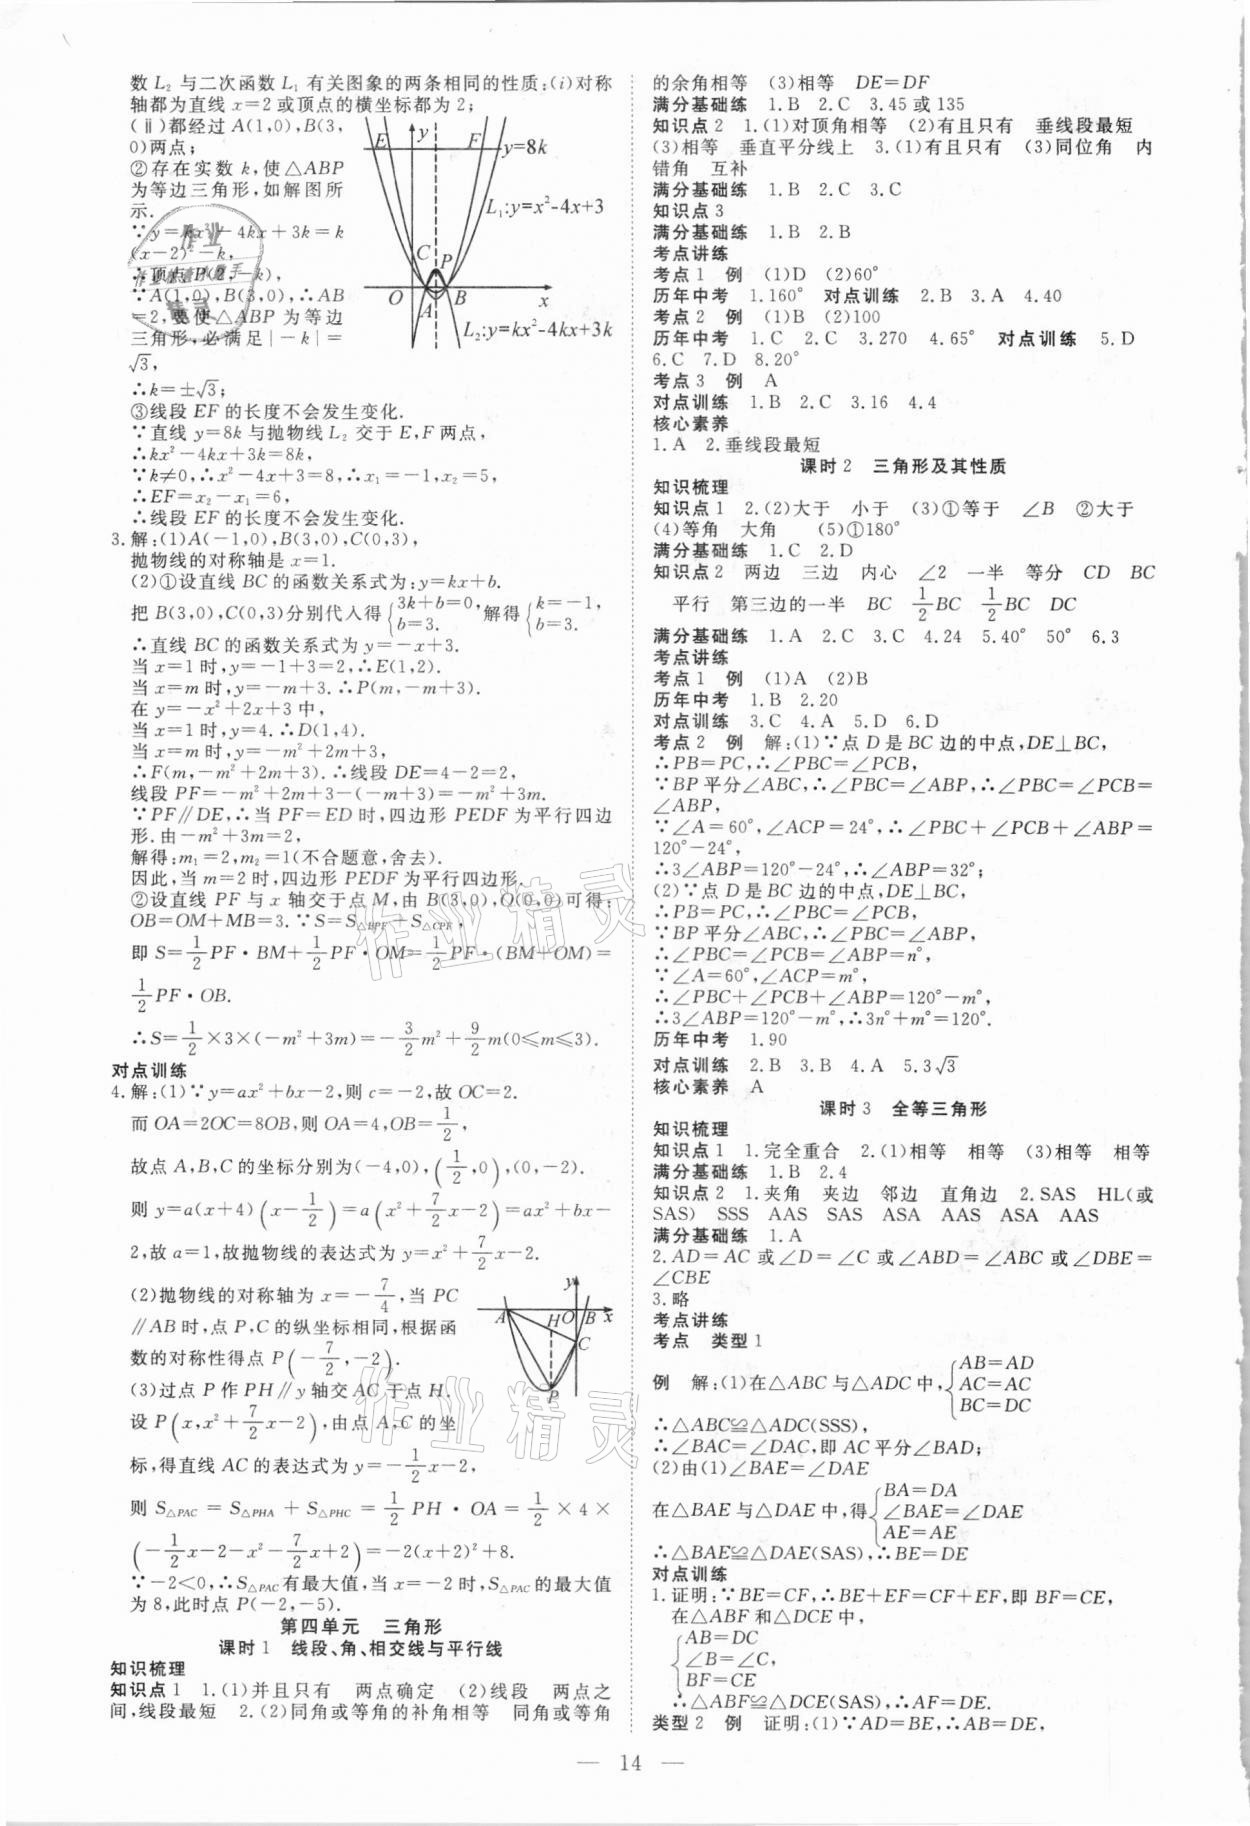 数 L₂ 与二次函数 L₁ 有关图象的两条相同的性质:(ⅰ)对称
轴都为直线 x=2 或顶点的横坐标都为 2;
(ⅱ)都经过 A(1,0),B(3,
0)两点;
②存在实数 k,使△ABP
为等边三角形,如解图所
示.
∵y=kx²-4kx+3k=k
(x-2)²-k,
∴顶点 P(2,-k),
∵A(1,0),B(3,0),∴AB
=2,要使△ABP 为等边
三角形,必满足|-k|=
√3,
∴k=±√3;
y
E
F
y=8k
L₁:y=x²-4x+3
C
P
O
A
B
x
L₂:y=kx²-4kx+3k
③线段 EF 的长度不会发生变化.
∵直线 y=8k 与抛物线 L₂ 交于 E,F 两点,
∴kx²-4kx+3k=8k,
∵k≠0,∴x²-4x+3=8,∴x₁=-1,x₂=5,
∴EF=x₂-x₁=6,
∴线段 EF 的长度不会发生变化.
3.解:(1)A(-1,0),B(3,0),C(0,3),
抛物线的对称轴是 x=1.
(2)①设直线 BC 的函数关系式为:y=kx+b.
把 B(3,0),C(0,3)分别代人得{3k+b=0, b=3. 解得{k=-1, b=3.
∴直线 BC 的函数关系式为 y=-x+3.
当 x=1 时,y=-1+3=2,∴E(1,2).
当 x=m 时,y=-m+3.∴P(m,-m+3).
在 y=-x²+2x+3 中,
当 x=1 时,y=4.∴D(1,4).
当 x=m 时,y=-m²+2m+3,
∴F(m,-m²+2m+3).∴线段 DE=4-2=2,
线段 PF=-m²+2m+3-(-m+3)=-m²+3m.
∵PF∥DE,∴当 PF=ED 时,四边形 PEDF 为平行四边
形.由-m²+3m=2,
解得:m₁=2,m₂=1(不合题意,舍去).
因此,当 m=2 时,四边形 PEDF 为平行四边形.
②设直线 PF 与 x 轴交于点 M,由 B(3,0),O(0,0)可得:
OB=OM+MB=3.∵S=S△BPF+S△CPF,
即 S=1/2 PF·BM+1/2 PF·OM=1/2 PF·(BM+OM)=
1/2 PF·OB.
∴S=1/2×3×(-m²+3m)=-3/2 m²+9/2 m(0≤m≤3).
对点训练
4.解:(1)∵y=ax²+bx-2,则 c=-2,故 OC=2.
而 OA=2OC=8OB,则 OA=4,OB=1/2,
故点 A,B,C 的坐标分别为(-4,0),(1/2,0),(0,-2).
则 y=a(x+4)(x-1/2)=a(x²+7/2 x-2)=ax²+bx-
2,故 a=1,故抛物线的表达式为 y=x²+7/2 x-2.
(2)抛物线的对称轴为 x=-7/4,当 PC
∥AB 时,点 P,C 的纵坐标相同,根据函
数的对称性得点 P(-7/2,-2).
(3)过点 P 作 PH∥y 轴交 AC 于点 H.
设 P(x,x²+7/2 x-2),由点 A,C 的坐
标,得直线 AC 的表达式为 y=-1/2 x-2,
y
A
H
O
B
x
C
P
则 S△PAC=S△PHA+S△PHC=1/2 PH·OA=1/2×4×
(-1/2 x-2-x²-7/2 x+2)=-2(x+2)²+8.
∵-2<0,∴S△PAC有最大值,当 x=-2 时,S△PAC的最大值
为 8,此时点 P(-2,-5).
第四单元 三角形
课时 1 线段、角、相交线与平行线
知识梳理
知识点 1 1.(1)并且只有 两点确定 (2)线段 两点之
间,线段最短 2.(2)同角或等角的补角相等 同角或等角
的余角相等 (3)相等 DE=DF
满分基础练 1.B 2.C 3.45 或 135
知识点 2 1.(1)对顶角相等 (2)有且只有 垂线段最短
(3)相等 垂直平分线上 3.(1)有且只有 (3)同位角 内
错角 互补
满分基础练 1.B 2.C 3.C
知识点 3
满分基础练 1.B 2.B
考点讲练
考点 1 例 (1)D (2)60°
历年中考 1.160° 对点训练 2.B 3.A 4.40
考点 2 例 (1)B (2)100
历年中考 1.C 2.C 3.270 4.65° 对点训练 5.D
6.C 7.D 8.20°
考点 3 例 A
对点训练 1.B 2.C 3.16 4.4
核心素养
1.A 2.垂线段最短
课时 2 三角形及其性质
知识梳理
知识点 1 2.(2)大于 小于 (3)①等于 ∠B ②大于
(4)等角 大角 (5)①180°
满分基础练 1.C 2.D
知识点 2 两边 三边 内心 ∠2 一半 等分 CD BC
平行 第三边的一半 BC 1/2 BC 1/2 BC DC
满分基础练 1.A 2.C 3.C 4.24 5.40° 50° 6.3
考点讲练
考点 1 例 (1)A (2)B
历年中考 1.B 2.20
对点训练 3.C 4.A 5.D 6.D
考点 2 例 解:(1)∵点 D 是 BC 边的中点,DE⊥BC,
∴PB=PC,∴∠PBC=∠PCB,
∵BP 平分∠ABC,∴∠PBC=∠ABP,∴∠PBC=∠PCB=
∠ABP,
∵∠A=60°,∠ACP=24°,∴∠PBC+∠PCB+∠ABP=
120°-24°,
∴3∠ABP=120°-24°,∴∠ABP=32°;
(2)∵点 D 是 BC 边的中点,DE⊥BC,
∴PB=PC,∴∠PBC=∠PCB,
∵BP 平分∠ABC,∴∠PBC=∠ABP,
∴∠PBC=∠PCB=∠ABP=n°,
∵∠A=60°,∠ACP=m°,
∴∠PBC+∠PCB+∠ABP=120°-m°,
∴3∠ABP=120°-m°,∴3n°+m°=120°.
历年中考 1.90
对点训练 2.B 3.B 4.A 5.3√3
核心素养 A
课时 3 全等三角形
知识梳理
知识点 1 1.完全重合 2.(1)相等 相等 (3)相等 相等
满分基础练 1.B 2.4
知识点 2 1.夹角 夹边 邻边 直角边 2.SAS HL(或
SAS) SSS AAS SAS ASA AAS ASA AAS
满分基础练 1.A
2.AD=AC 或∠D=∠C 或∠ABD=∠ABC 或∠DBE=
∠CBE
3.略
考点讲练
考点 类型 1
例 解:(1)在△ABC 与△ADC 中,{AB=AD AC=AC BC=DC
∴△ABC≌△ADC(SSS),
∴∠BAC=∠DAC,即 AC 平分∠BAD;
(2)由(1)∠BAE=∠DAE
在△BAE 与△DAE 中,得{BA=DA ∠BAE=∠DAE AE=AE
∴△BAE≌△DAE(SAS),∴BE=DE
对点训练
1.证明:∵BE=CF,∴BE+EF=CF+EF,即 BF=CE,
在△ABF 和△DCE 中,
{AB=DC
∠B=∠C,
BF=CE
∴△ABF≌△DCE(SAS),∴AF=DE.
类型 2 例 证明:(1)∵AD=BE,∴AB=DE,
— 14 —
作业精灵
作业精灵